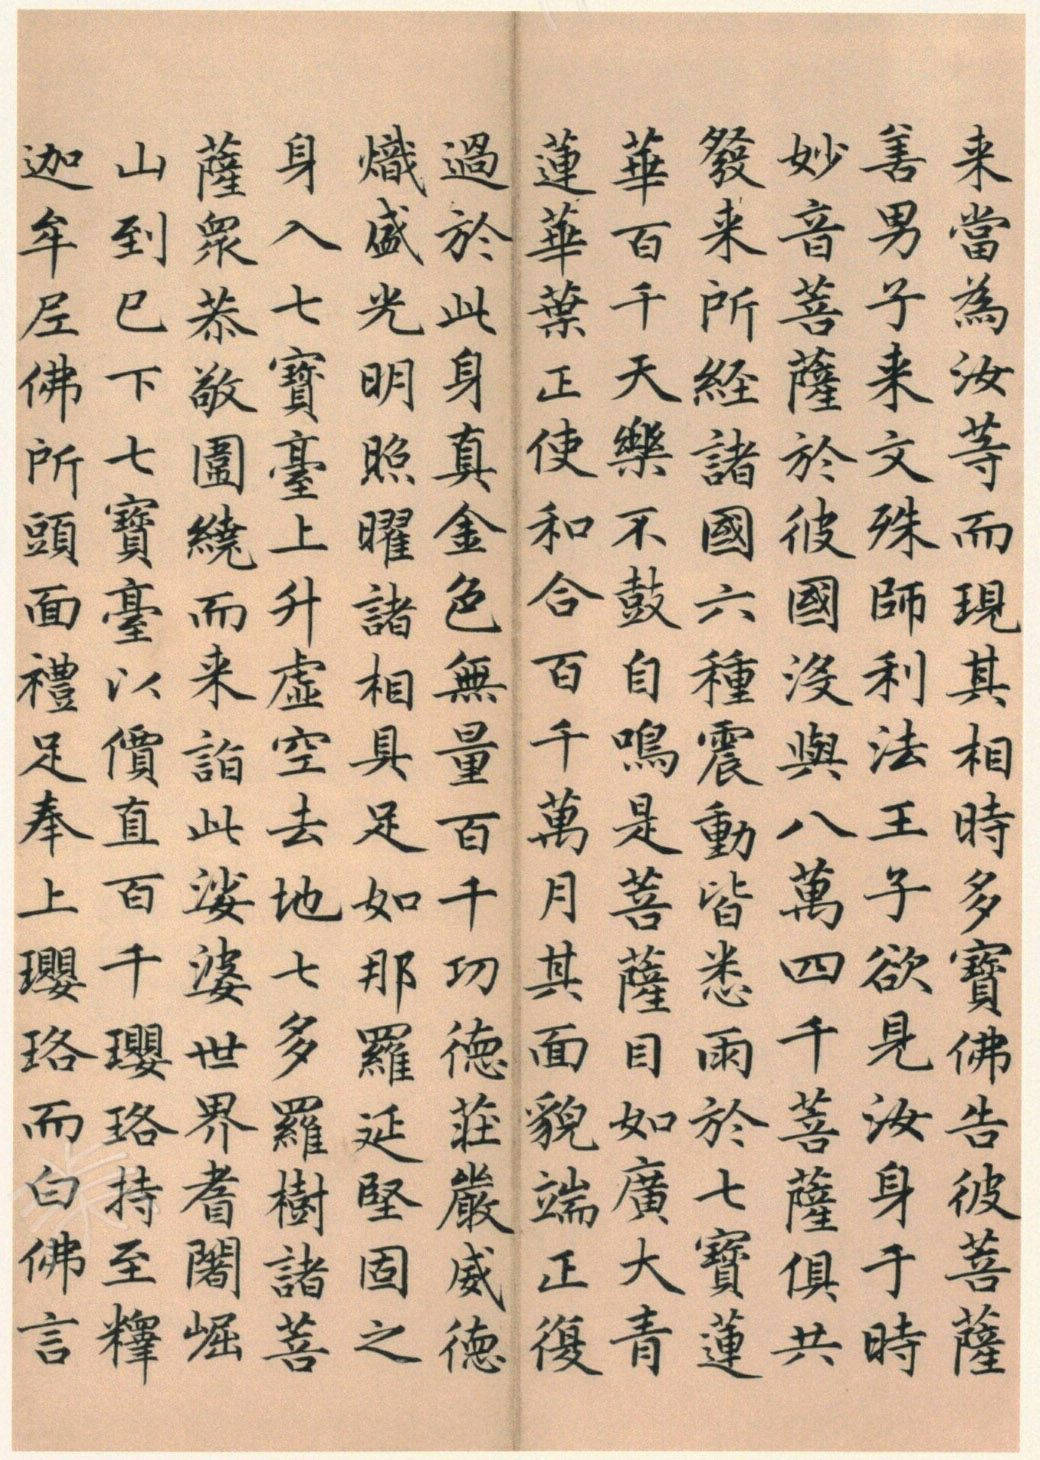 来當為汝等而現其相時多寶佛告彼菩薩
善男子来文殊師利法王子欲見汝身于時
妙音菩薩於彼國没與八萬四千菩薩俱共
發来所経諸國六種震動皆悉雨於七寶蓮
華百千天樂不鼓自鳴是菩薩目如廣大青
蓮華葉正使和合百千萬月其面貌端正復
過於此身真金色無量百千功徳莊嚴威徳
熾盛光明照曜諸相具足如那羅延堅固之
身入七寶臺上升虛空去地七多羅樹諸菩
薩眾恭敬圍繞而来詣此娑婆世界耆闍崛
山到已下七寶臺以價直百千瓔珞持至釋
迦牟尼佛所頭面禮足奉上瓔珞而白佛言